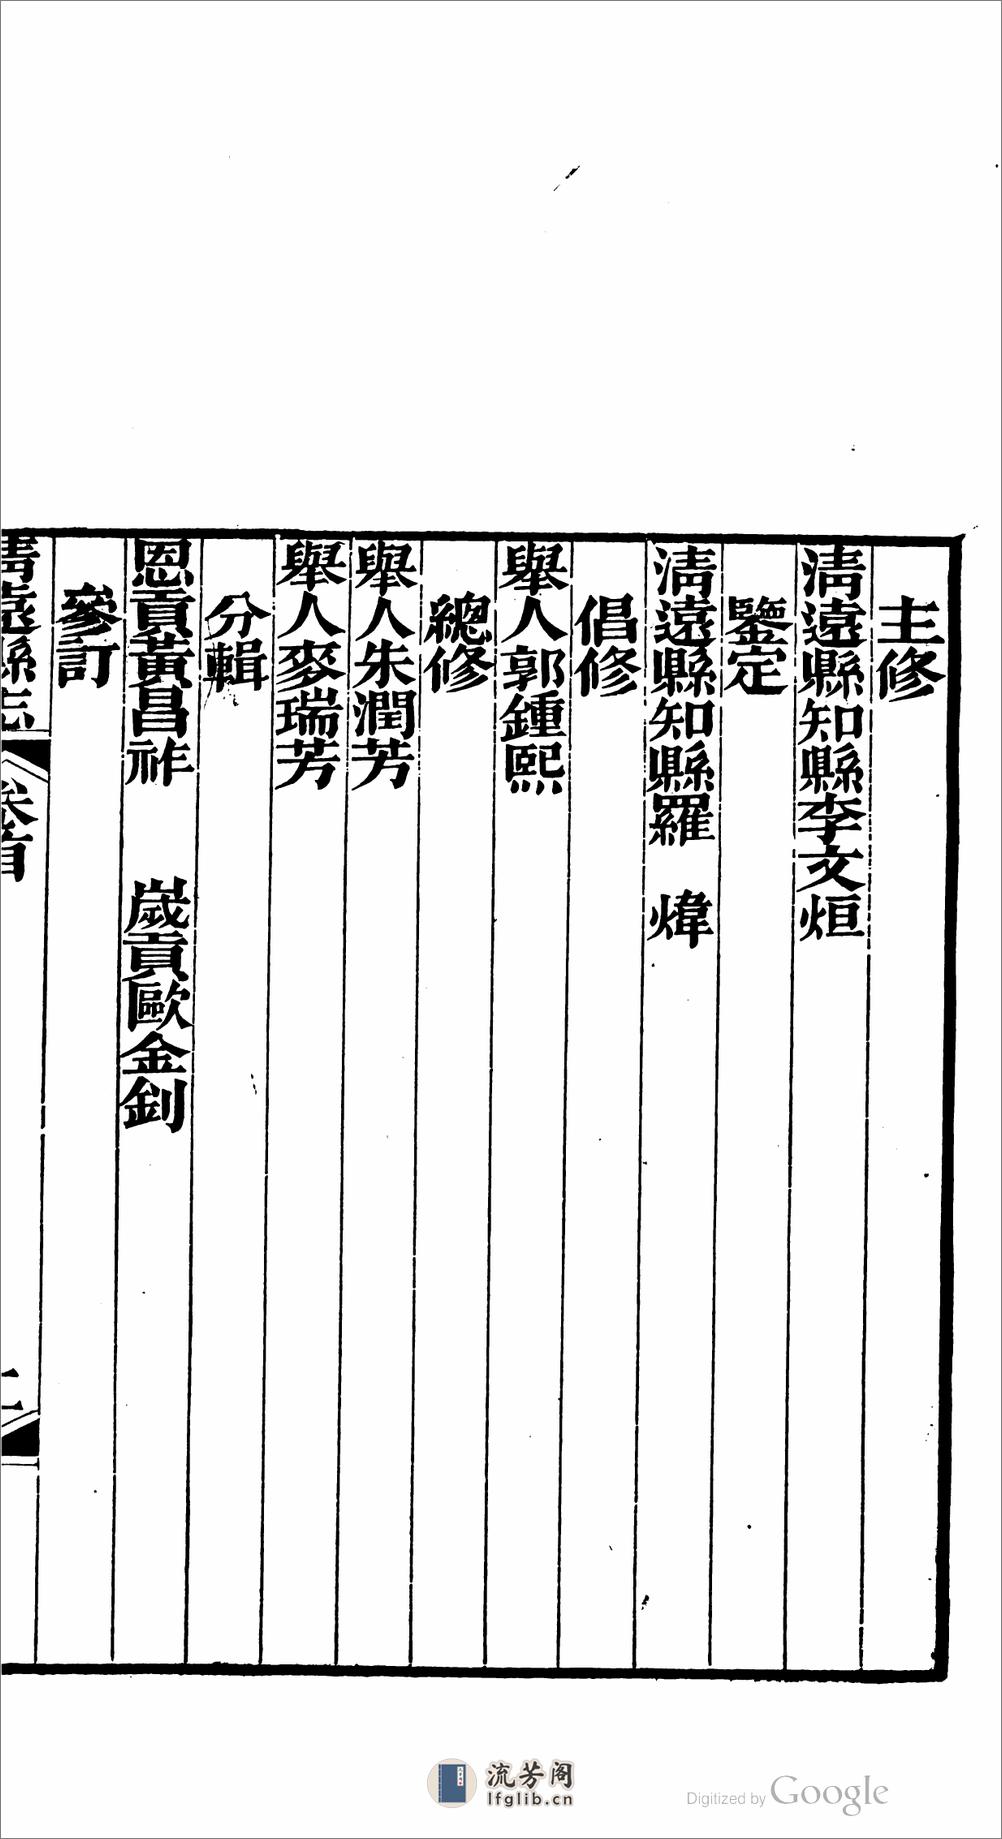 主修
淸遠縣知縣李文烜
鑒定
淸遠縣知縣羅　煒
倡修
舉人郭鍾熙
總修
舉人朱潤芳
舉人麥瑞芳
分輯
恩貢黃昌祚　歲貢歐金釗
參訂
淸遠縣志　卷首　二
流芳阁
lfglib.cn
Digitized by Google